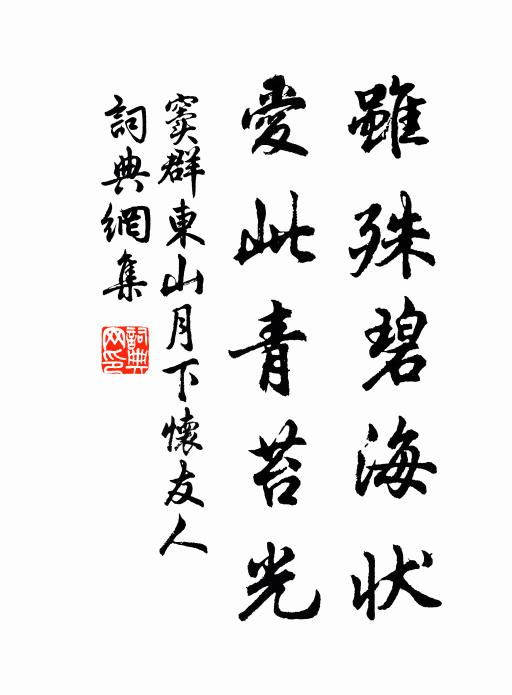 雖殊碧海狀
愛此青苔光
竇群東山月下懷友人
詞典網集
詞典
网印